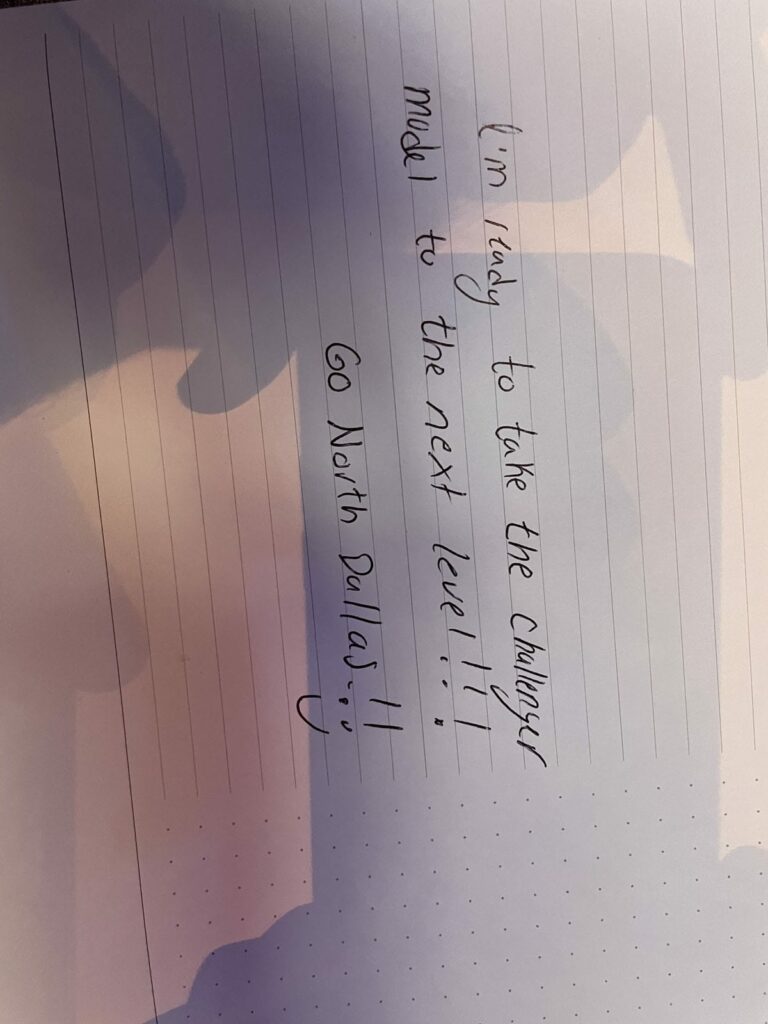 I'm ready to take the challenger
model to the next level!!!
Go North Dallas..!!